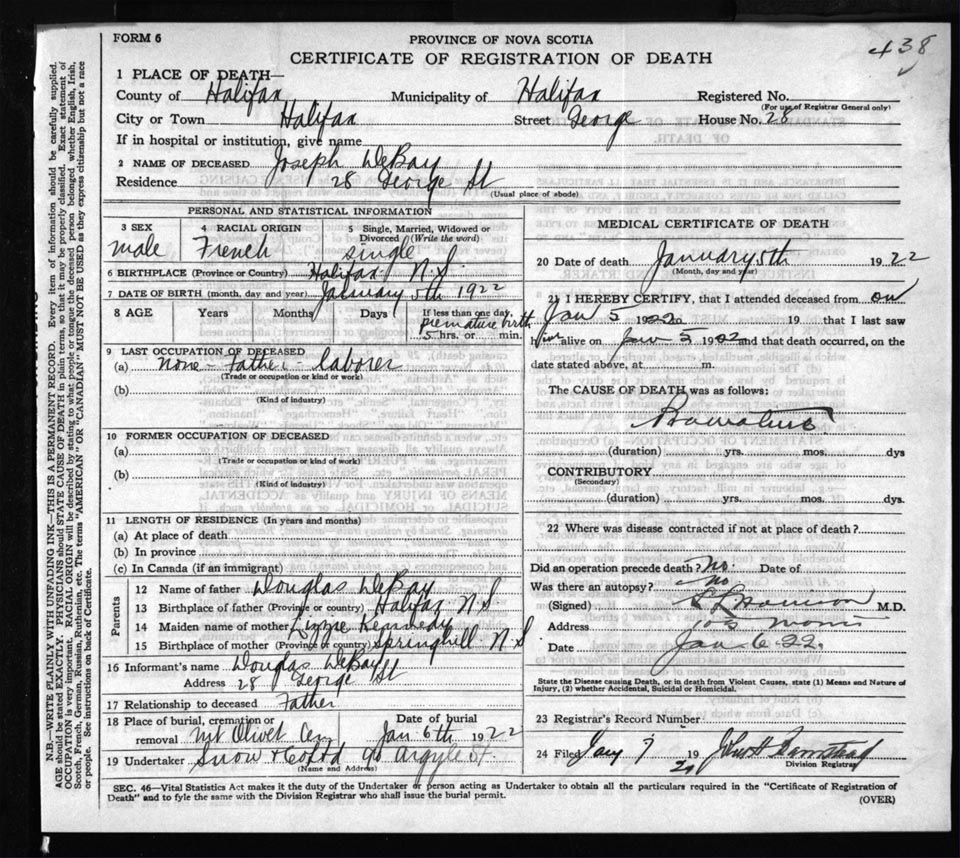 FORM 6
PROVINCE OF NOVA SCOTIA
438
CERTIFICATE OF REGISTRATION OF DEATH
1 PLACE OF DEATH—
County of Halifax Municipality of Halifax Registered No.
(For use of Registrar General only)
City or Town Halifax Street George House No. 28
If in hospital or institution, give name
2 NAME OF DECEASED Joseph DeBay
Residence 28 George St
(Usual place of abode)
PERSONAL AND STATISTICAL INFORMATION
3 SEX 4 RACIAL ORIGIN 5 Single, Married, Widowed or Divorced (Write the word)
male French single
6 BIRTHPLACE (Province or Country) Halifax N.S.
7 DATE OF BIRTH (month, day and year) January 5th 1922
8 AGE Years Months Days If less than one day,
premature birth
5 hrs. or min.
9 LAST OCCUPATION OF DECEASED
(a) None - Father - laborer
(Trade or occupation or kind or work)
(b)
(Kind of industry)
10 FORMER OCCUPATION OF DECEASED
(a)
(Trade or occupation or kind of work)
(b)
(Kind of industry)
11 LENGTH OF RESIDENCE (In years and months)
(a) At place of death
(b) In province
(c) In Canada (if an immigrant)
Parents
12 Name of father Douglas DeBay
13 Birthplace of father (Province or country) Halifax N.S.
14 Maiden name of mother Lizzie Kennedy
15 Birthplace of mother (Province or country) Springhill N.S
16 Informant's name Douglas DeBay
Address 28 George St
17 Relationship to deceased Father
18 Place of burial, cremation or removal Mt Olivet Cem Date of burial Jan 6th 1922
19 Undertaker Snow & Co Ltd 90 Argyle St.
(Name and Address)
MEDICAL CERTIFICATE OF DEATH
20 Date of death January 5th 1922
(Month, day and year)
21 I HEREBY CERTIFY, that I attended deceased from on
Jan 5 1922 to 19 that I last saw
him alive on Jan 5 1922 and that death occurred, on the
date stated above, at m.
The CAUSE OF DEATH was as follows:
(duration) yrs. mos. dys
CONTRIBUTORY
(Secondary)
(duration) yrs. mos. dys.
22 Where was disease contracted if not at place of death?
Did an operation precede death? No. Date of
Was there an autopsy? No
(Signed) M.D.
Address 105 Morris
Date Jan. 6. 22.
State the Disease causing Death, or in death from Violent Causes, state (1) Means and Nature of
Injury, (2) whether Accidental, Suicidal or Homicidal.
23 Registrar's Record Number
24 Filed Jany 7 19
Division Registrar
SEC. 46—Vital Statistics Act makes it the duty of the Undertaker or person acting as Undertaker to obtain all the particulars required in the "Certificate of Registration of
Death" and to fyle the same with the Division Registrar who shall issue the burial permit.
(OVER)
N.B.—WRITE PLAINLY WITH UNFADING INK—THIS IS A PERMANENT RECORD. Every item of information should be carefully supplied.
AGE should be stated EXACTLY. PHYSICIANS should STATE CAUSE OF DEATH in plain terms, so that it may be properly classified. Exact statement of
OCCUPATION is very important. RACIAL ORIGIN will be described by stating to what people or tongue the deceased person belonged whether English, Irish,
Scotch, French, German, Russian, Ruthenian, etc. The terms "AMERICAN" OR "CANADIAN" MUST NOT BE USED as they express citizenship but not a race
or people. See instructions on back of Certificate.